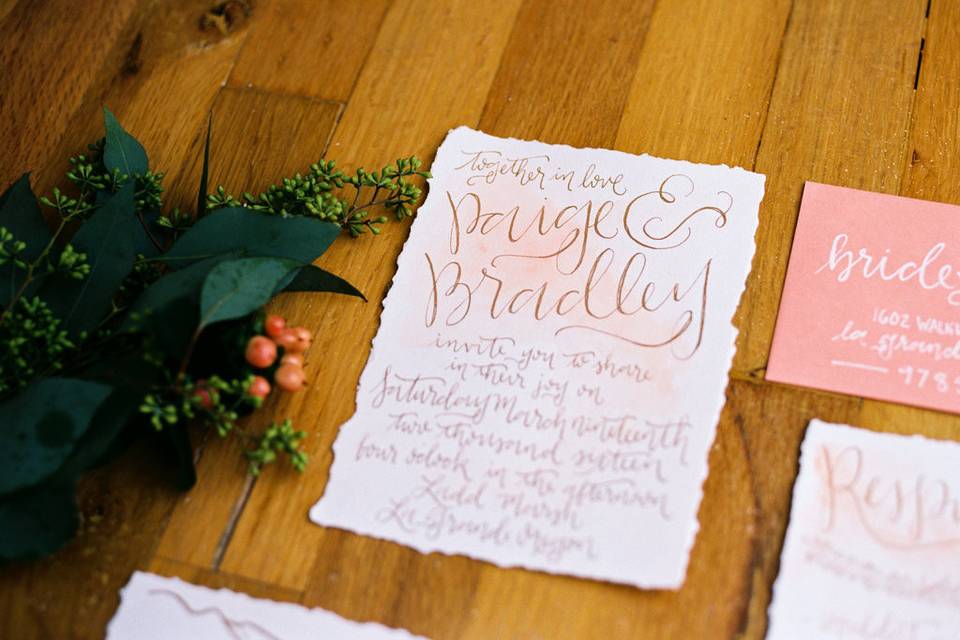 together in love
Paige &
Bradley
invite you to share
in their joy on
Saturday March nineteenth
two thousand sixteen
four oclock in the afternoon
Ladd Marsh
La Grande Oregon
bride
1602 WALNU
la grand
978
Resp